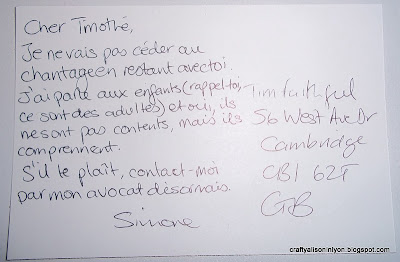 Cher Tmothé,
Je ne vais pas céder au
chantage en restant avec toi.
J'ai parlé aux enfants (rappel-toi,
ce sont des adultes) et oui, ils
ne sont pas contents, mais ils
comprennent.
S'il te plaît, contact-moi
par mon avocat désormais.
Simone
Tim faithful
56 West Ave Dr
Cambridge
CB1 62T
GB
craftyalison-inlyon.blogspot.com